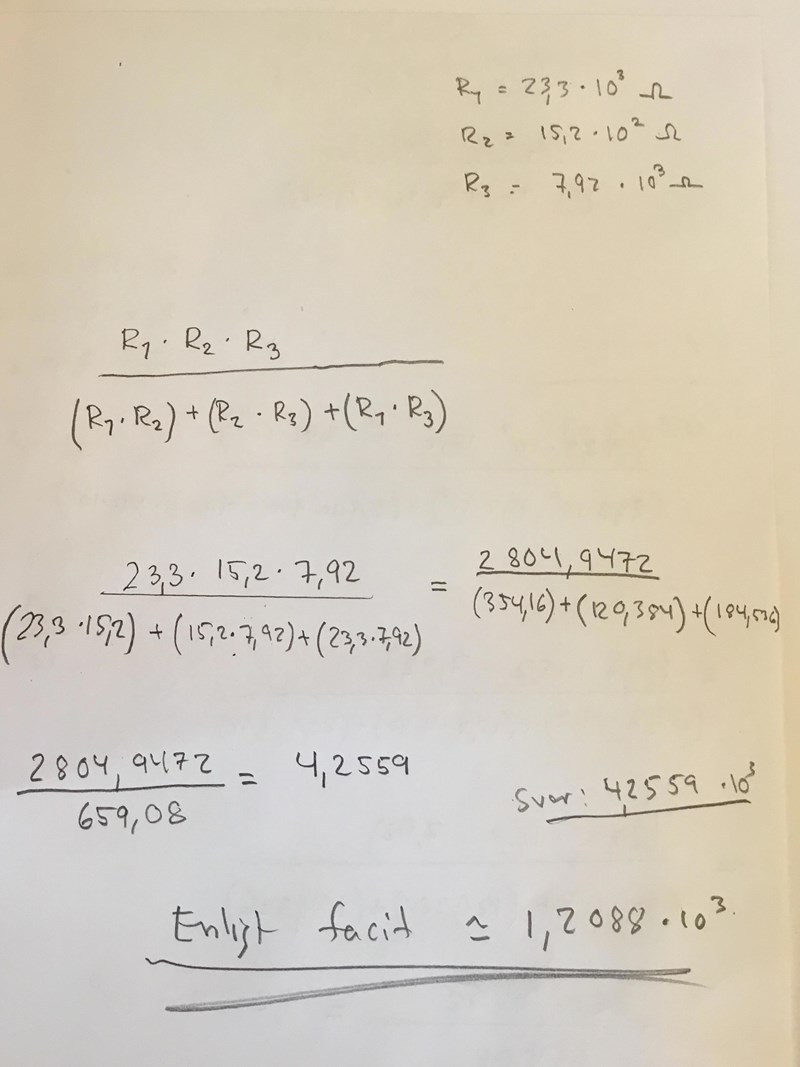 R₁ = 23,3 · 10³ Ω
R₂ = 15,2 · 10² Ω
R₃ = 7,92 · 10³ Ω
R₁ · R₂ · R₃
(R₁ · R₂) + (R₂ · R₃) + (R₁ · R₃)
23,3 · 15,2 · 7,92 = 2804,9472
(23,3 · 15,2) + (15,2 · 7,92) + (23,3 · 7,92) (354,16) + (120,384) + (184,536)
2804,9472 = 4,2559
659,08
Svar: 4,2559 · 10³
Enligt facit ≃ 1,2088 · 10³.